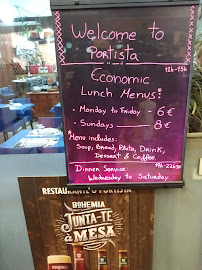 Welcome to
Portista
12h-15h
Economic
Lunch Menus:
- Monday to Friday - 6 €
- Sundays - 8 €
Menu includes:
Soup, Bread, Plate, Drink,
Dessert & Coffee
19h-22h30
Dinner Service
Wednesday to Saturday
RESTAURANTE O PORTISTA
BOHEMIA
JUNTA-TE
à MESA